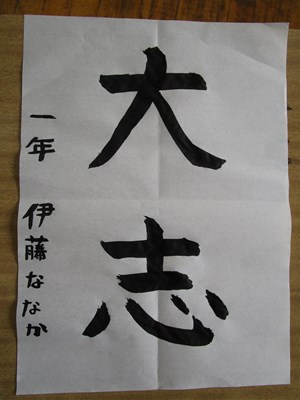 大志
一年 伊藤ななか